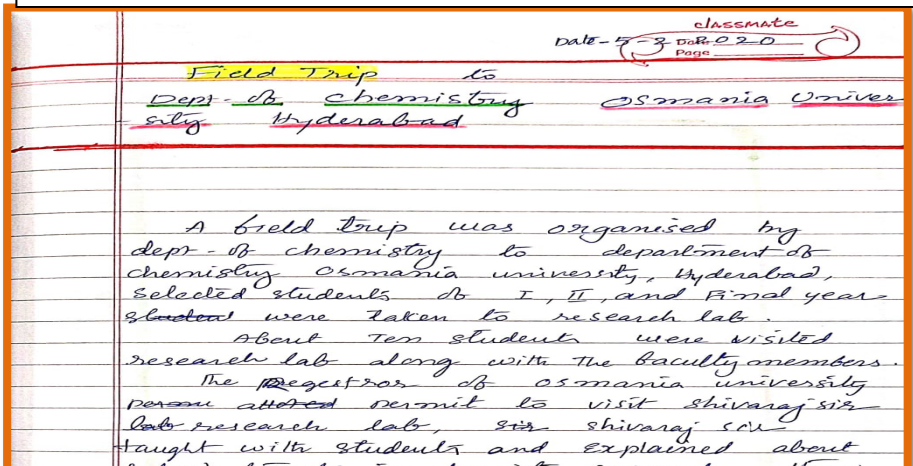 classmate
Date - 5 - 3 - 2020
Date
Page
Field Trip to
Dept - of chemistry Osmania Univer
sity Hyderabad
A field trip was organised by
dept - of chemistry to department of
chemistry Osmania university, Hyderabad,
Selected students of I, II, and Final year
student were taken to research lab.
About Ten students were visited
research lab along with the faculty members.
The Regestror of osmania university
permit to visit Shivaraj sir
lab research lab, sir shivaraj sir
taught with students and explained about